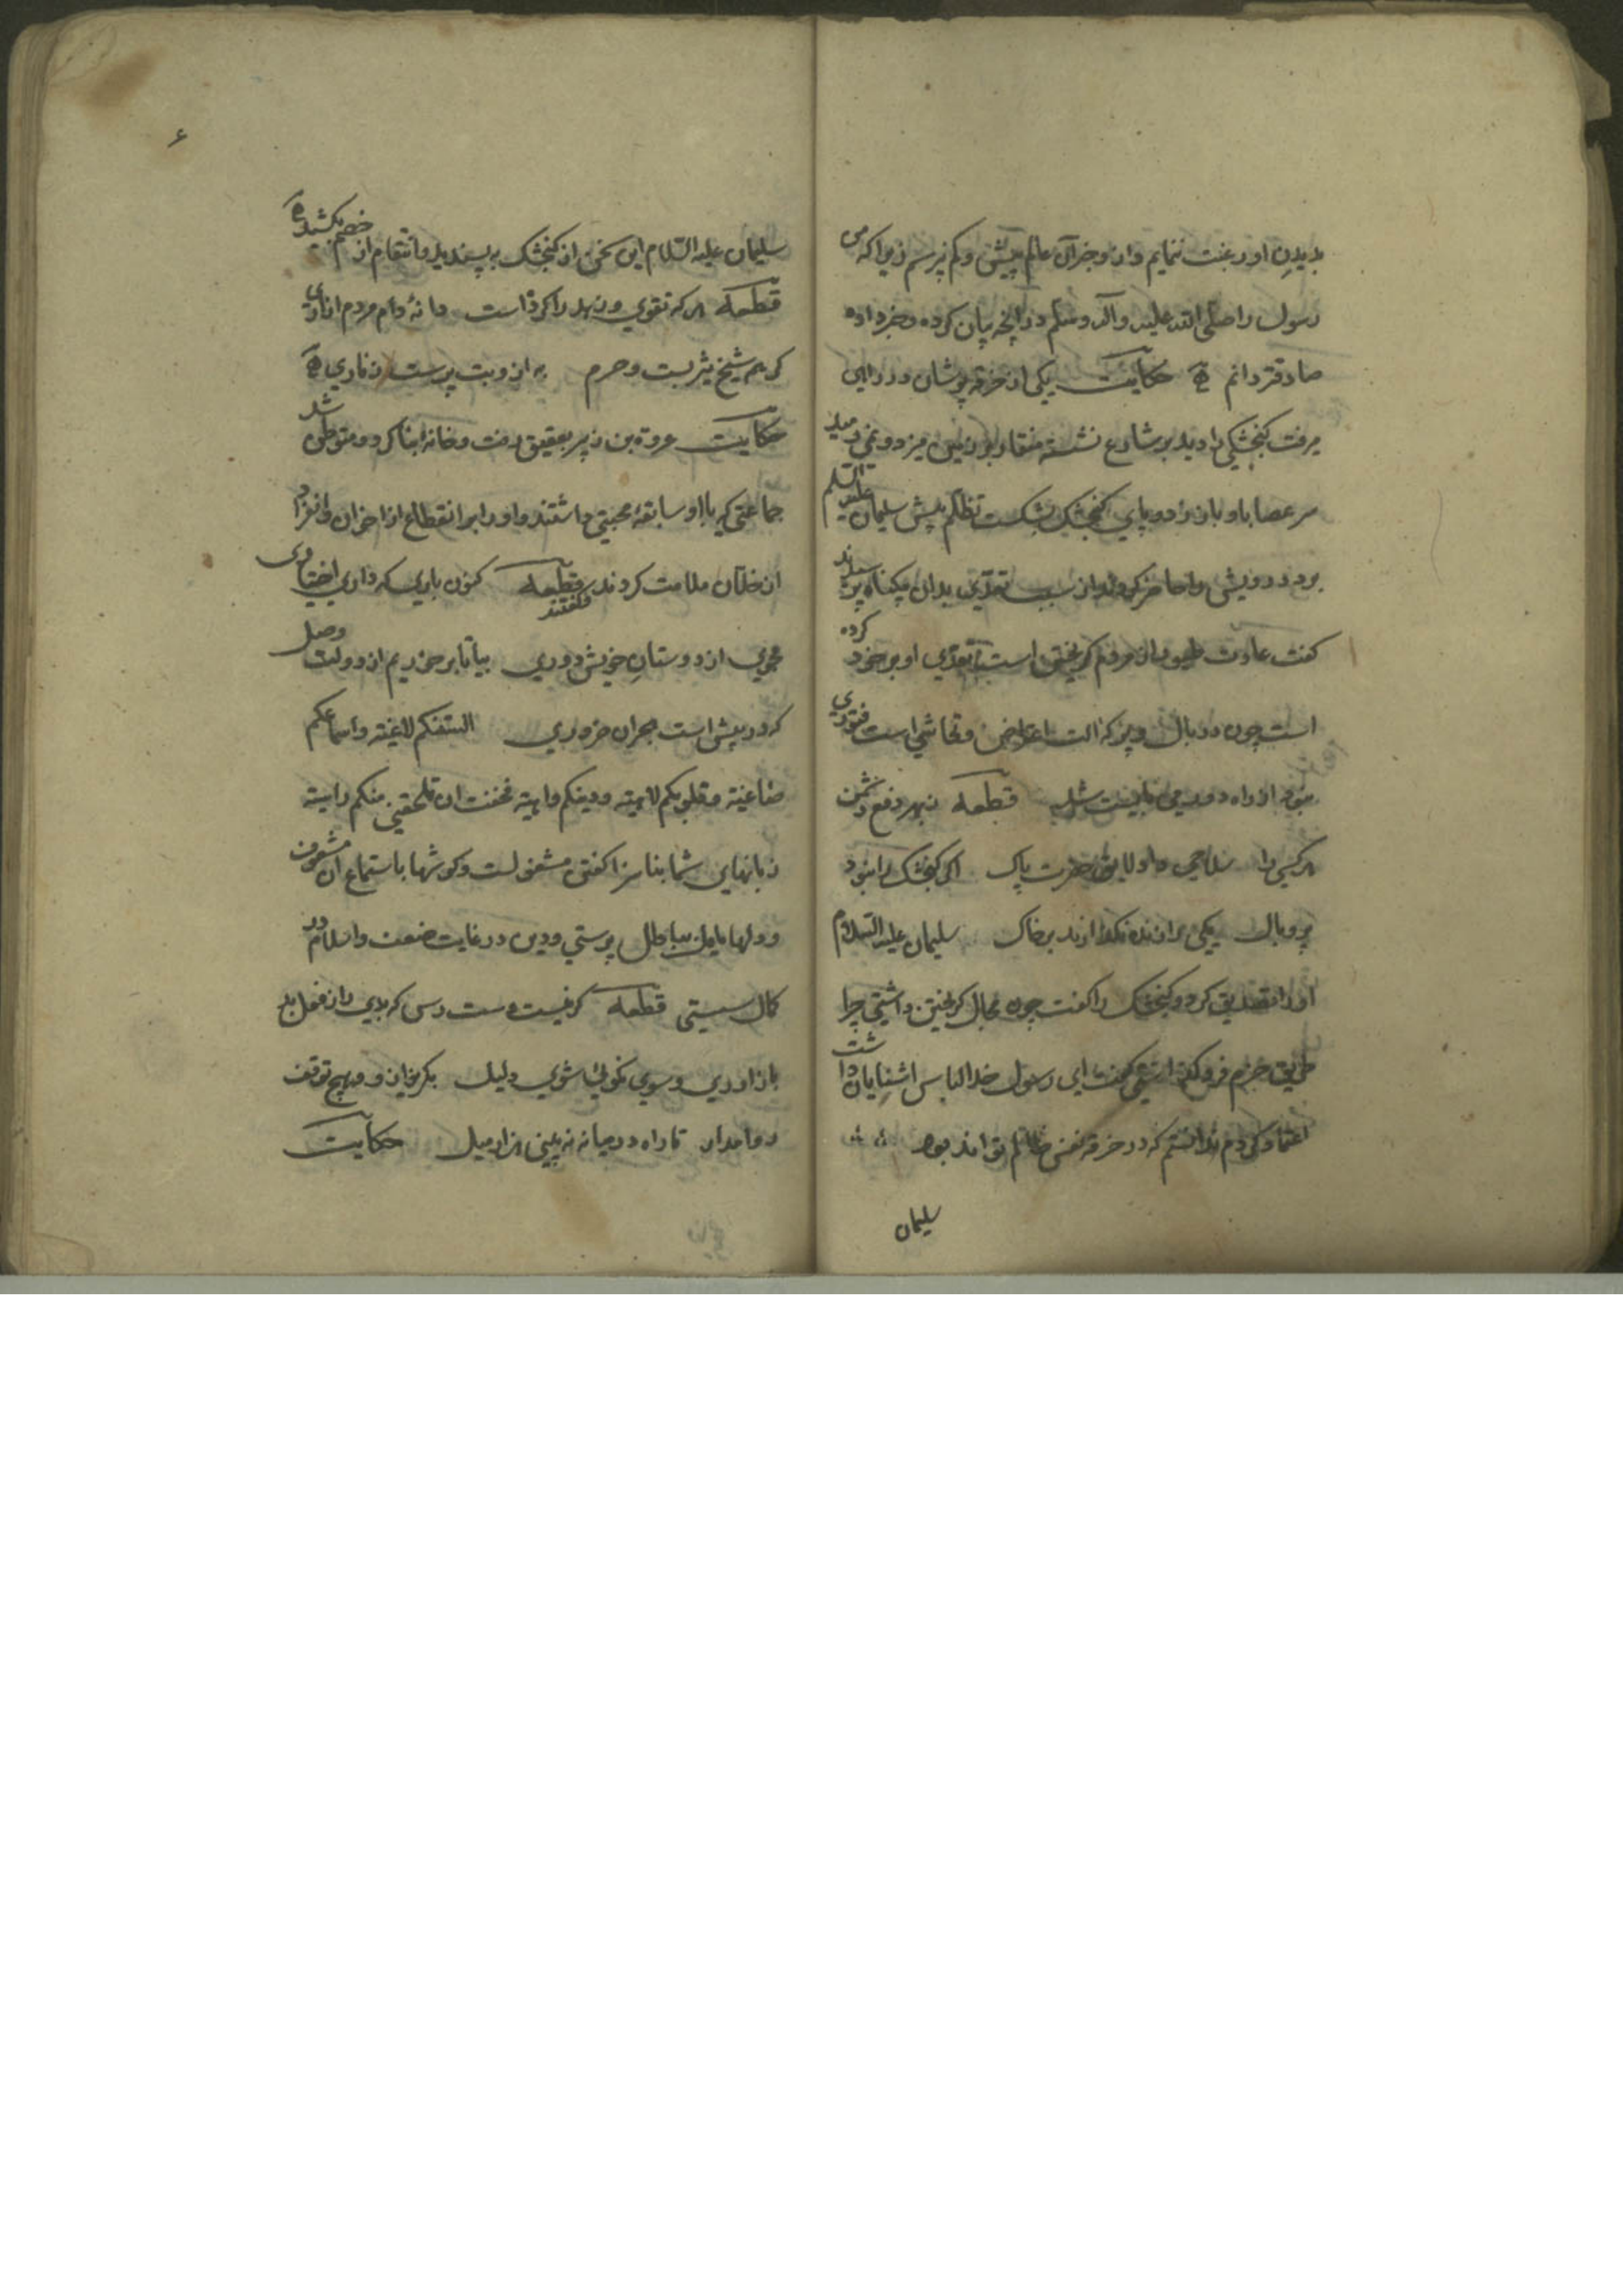 بدیدن او رغبت ننمایم و از وخبر آن عالم پیش و کم نپرسم زیرا که من
رسول را صلی الله علیه و آله وسلم در انچه بیان کرده و خبر داده
صادقتر دانم حکایت یکی از خرقه پوشان در راهی
میرفت کنجشکی را دید بر شارع نشسته منقار بر زمین میزد و نمی رمید
سر عصا باو باز زد و پای کنجشک بشکست تظلم پیش سلیمان علیه السلم
برد درویش را حاضر کردند و از سبب تعدی بدان بیکناه پرسیدند
کفت عادت طیور از مردم کریختن است تعدی او بر خود کرده
است چون در بال و پر که الت اعراض و تحاشی است فتوری
نبود از راه دور می بایست شد قطعه بهر دفع دشمن
هر کسی را سلاحی داد لایق حضرت پاک اکر کنجشک را نبود
پر و بال یکی را زنده نکذارند بر خاک سلیمان علیه السلام
او را تصدیق کرد و کنجشک را کفت چون مجال کریختن داشتی چرا
طریق حزم فرو کذاشتی کفت ای رسول خدا لباس اشنایان داشت
اعتماد کردم ندانستم که در خرقه نفس ظالم تواند بود
سلیمان
۶
سلیمان علیه السلام این سخن از کنجشک به پسندید و انتقام از خصم بکشید
قطعه هر که تقوی و زهد را کرده است دانهٔ دام مردم ازاری
کر بهم شیخ یثربست و حرم به از و بت پرست زناری
حکایت عروة بن زبیر بعقیق رفت و خانه بنا کرد و متوطن شد
جماعتی که با او سابقهٔ محبتی داشتند و او را بر انقطاع از اخوان و انفراد
از خلان ملامت کردند و کفتند قطعه کنون باری که داری اختیاری
مجوی از دوستان خویش دوری بیا تا بر خوریم از دولت وصل
که در پیش است هجران ضروری السنتکم لاغیة و اسماعکم
صاغیة و قلوبکم لاهیة و دینکم واهیة فخفت ان تلحقنی منکم داهیة
زبانهای شما بناسزا کفتن مشغولست و کوشها باستماع آن مشعوف
و دلها مایل بباطل پرستی و دین در غایت ضعف و اسلام در
کمال سستی قطعه کر نیست دست رس که بدی را ز فعل بد
باز اوری و سوی نکوئی شوی دلیل بکریز از و و هیچ توقف
روا مدار تا راه در میانه نه بینی هزار میل حکایت